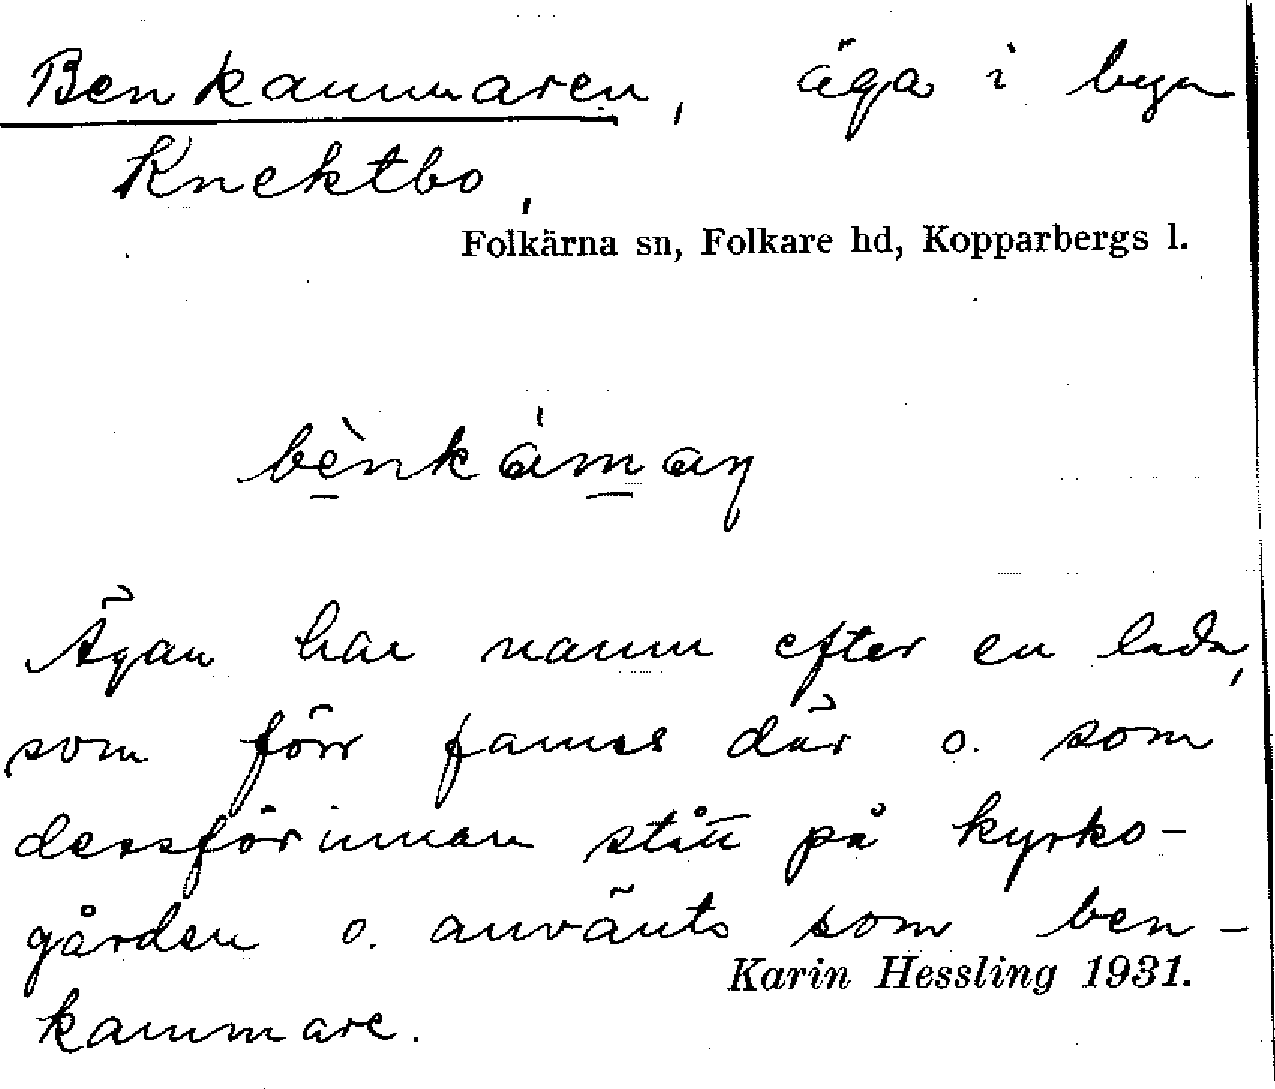 Benkammaren, äga i byn
Knektbo,
Folkärna sn, Folkare hd, Kopparbergs l.
bènkámaŋ
Ägan har namn efter en lada,
som förr fanns där o. som
dessförinnan stått på kyrko-
gården o. använts som ben-
Karin Hessling 1931.
kammare.